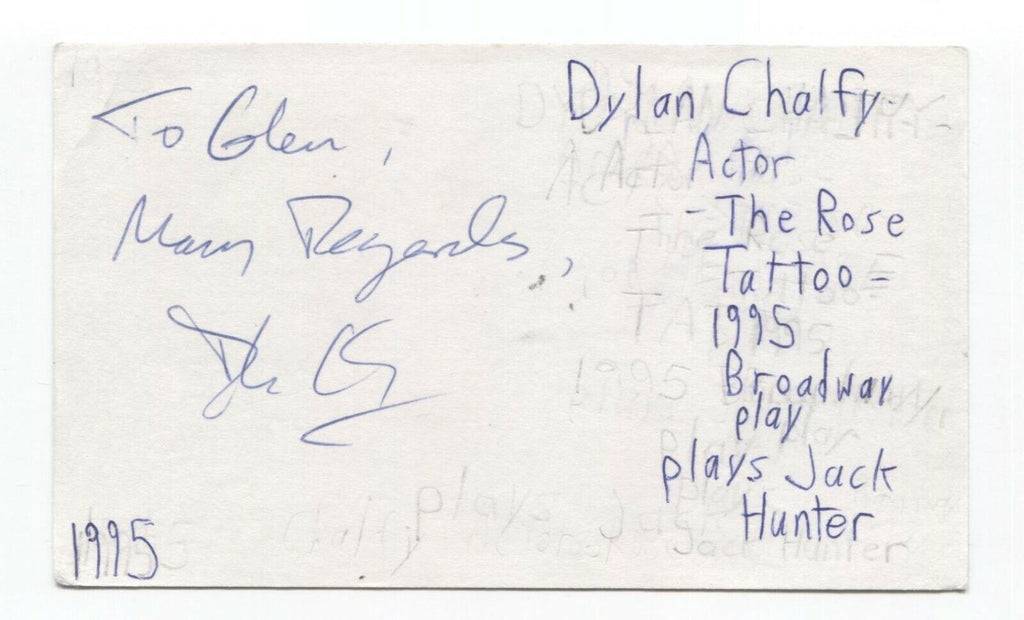 To Glen,
Many Regards,
1995
Dylan Chalfy-
Actor
- The Rose
Tattoo =
1995
Broadway
play
plays Jack
Hunter